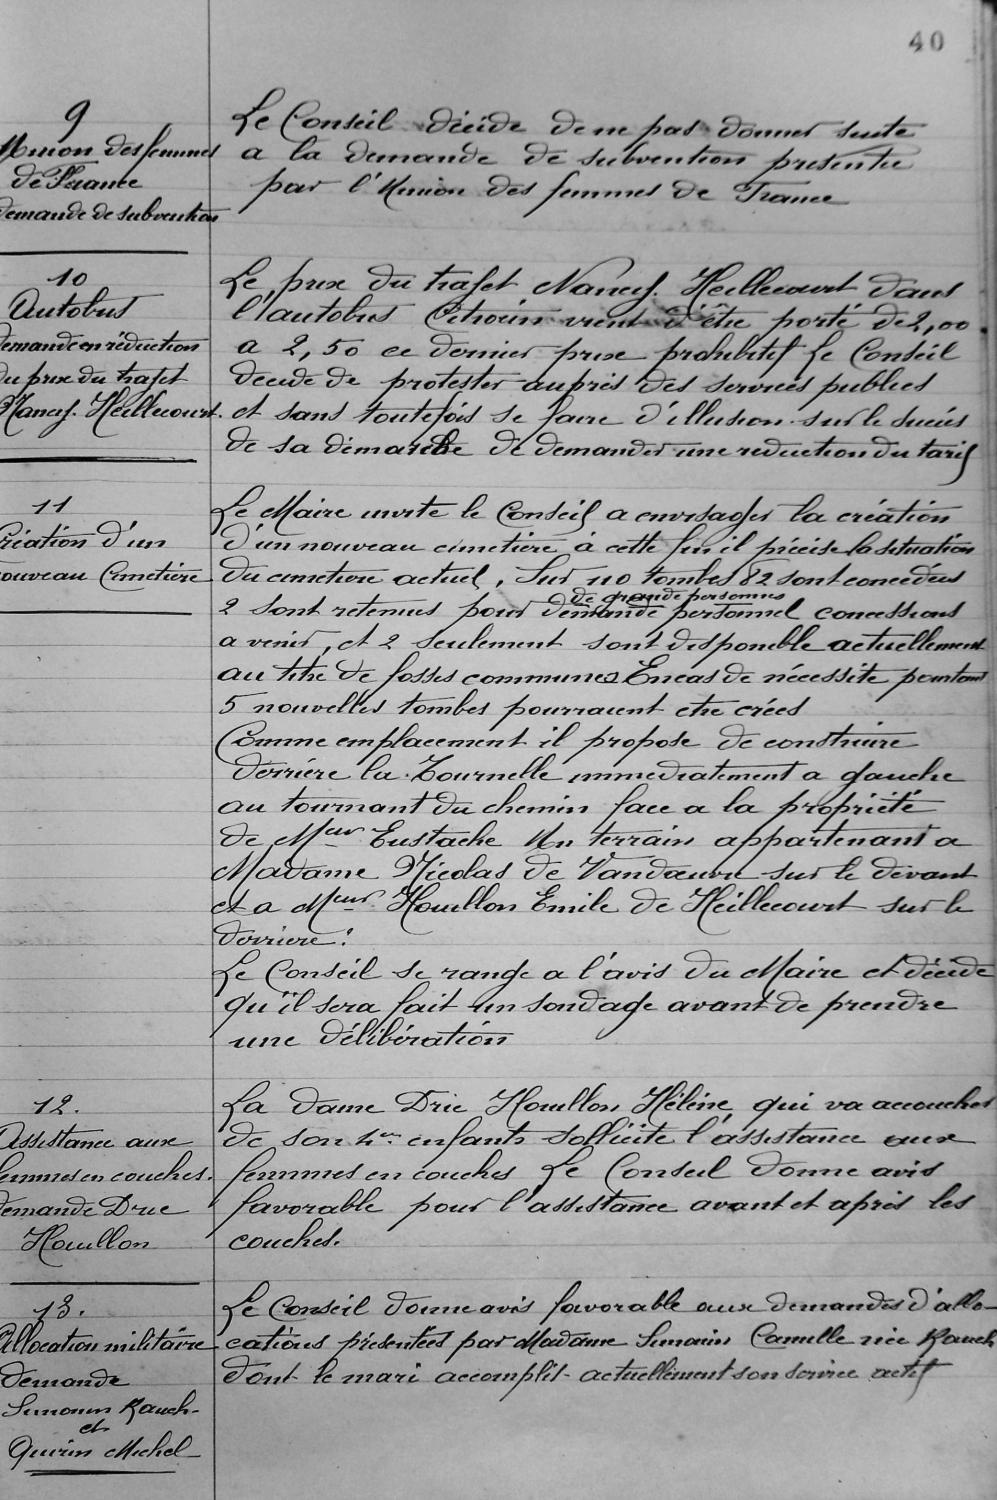 40
9
Union des femmes
de France
demande de subvention
Le Conseil décide de ne pas donner suite
a la demande de subvention presentée
par l'Union des femmes de France
10
Autobus
demande en réduction
du prix du trajet
Nancy. Heillecourt.
Le prix du trajet Nancy. Heillecourt dans
l'autobus Citroën vient d'être porté de 2,00
a 2,50 ce dernier prix prohibitif Le Conseil
decide de protester auprès des services publics
et sans toutefois se faire d'illusion sur le succès
de sa démarche de demander une reduction du tarif
11
Création d'un
nouveau Cimetière
Le Maire invite le Conseil a envisager la création
d'un nouveau cimetière à cette fin il précise la situation
du cimetière actuel, Sur 110 tombes 82 sont concédées
de grande personnes
2 sont retenues pour demande personnel concessions
a venir, et 2 seulement sont disponible actuellement
au titre de fosses communes En cas de nécessité pourtant
5 nouvelles tombes pourraient etre créés
Comme emplacement il propose de construire
derrière la Tournelle immediatement a gauche
au tournant du chemin face a la propriété
de Meur Eustache Un terrain appartenant a
Madame Nicolas de Vandœuvre sur le devant
et a Meur Houllon Emile de Heillecourt sur le
derriere.
Le Conseil se range a l'avis du Maire et décide
qu'il sera fait un sondage avant de prendre
une délibération
12.
Assistance aux
femmes en couches.
demande Drie
Houllon
La dame Drie Houllon Hélène qui va accoucher
de son enfants sollicite l'assistance aux
femmes en couches Le Conseil donne avis
favorable pour l'assistance avant et après les
couches.
13.
Allocation militaire
demande
Simonin Rauch
et
Quirin Michel
Le Conseil donne avis favorable aux demandes d'allo-
cations présentées par Madame Simonin Camille née Rauch
dont le mari accomplit actuellement son service actif